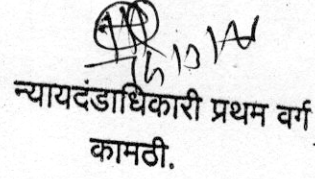 न्यायदंडाधिकारी प्रथम वर्ग
कामठी.